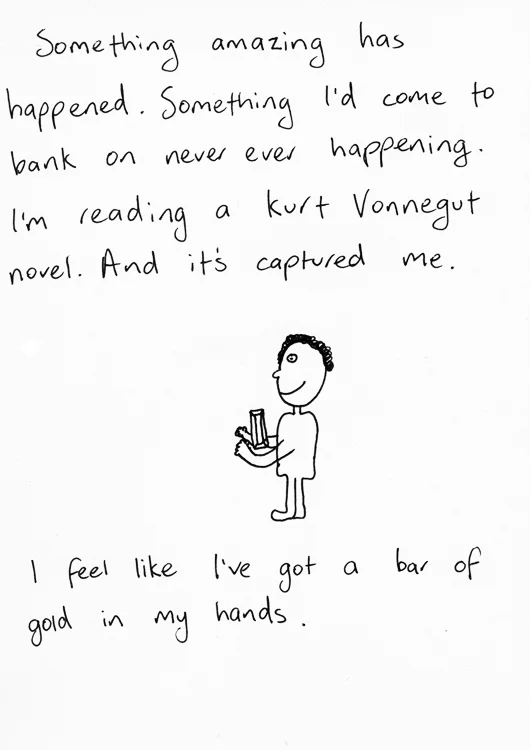 Something amazing has
happened. Something I'd come to
bank on never ever happening.
I'm reading a kurt Vonnegut
novel. And it's captured me.
I feel like I've got a bar of
gold in my hands.